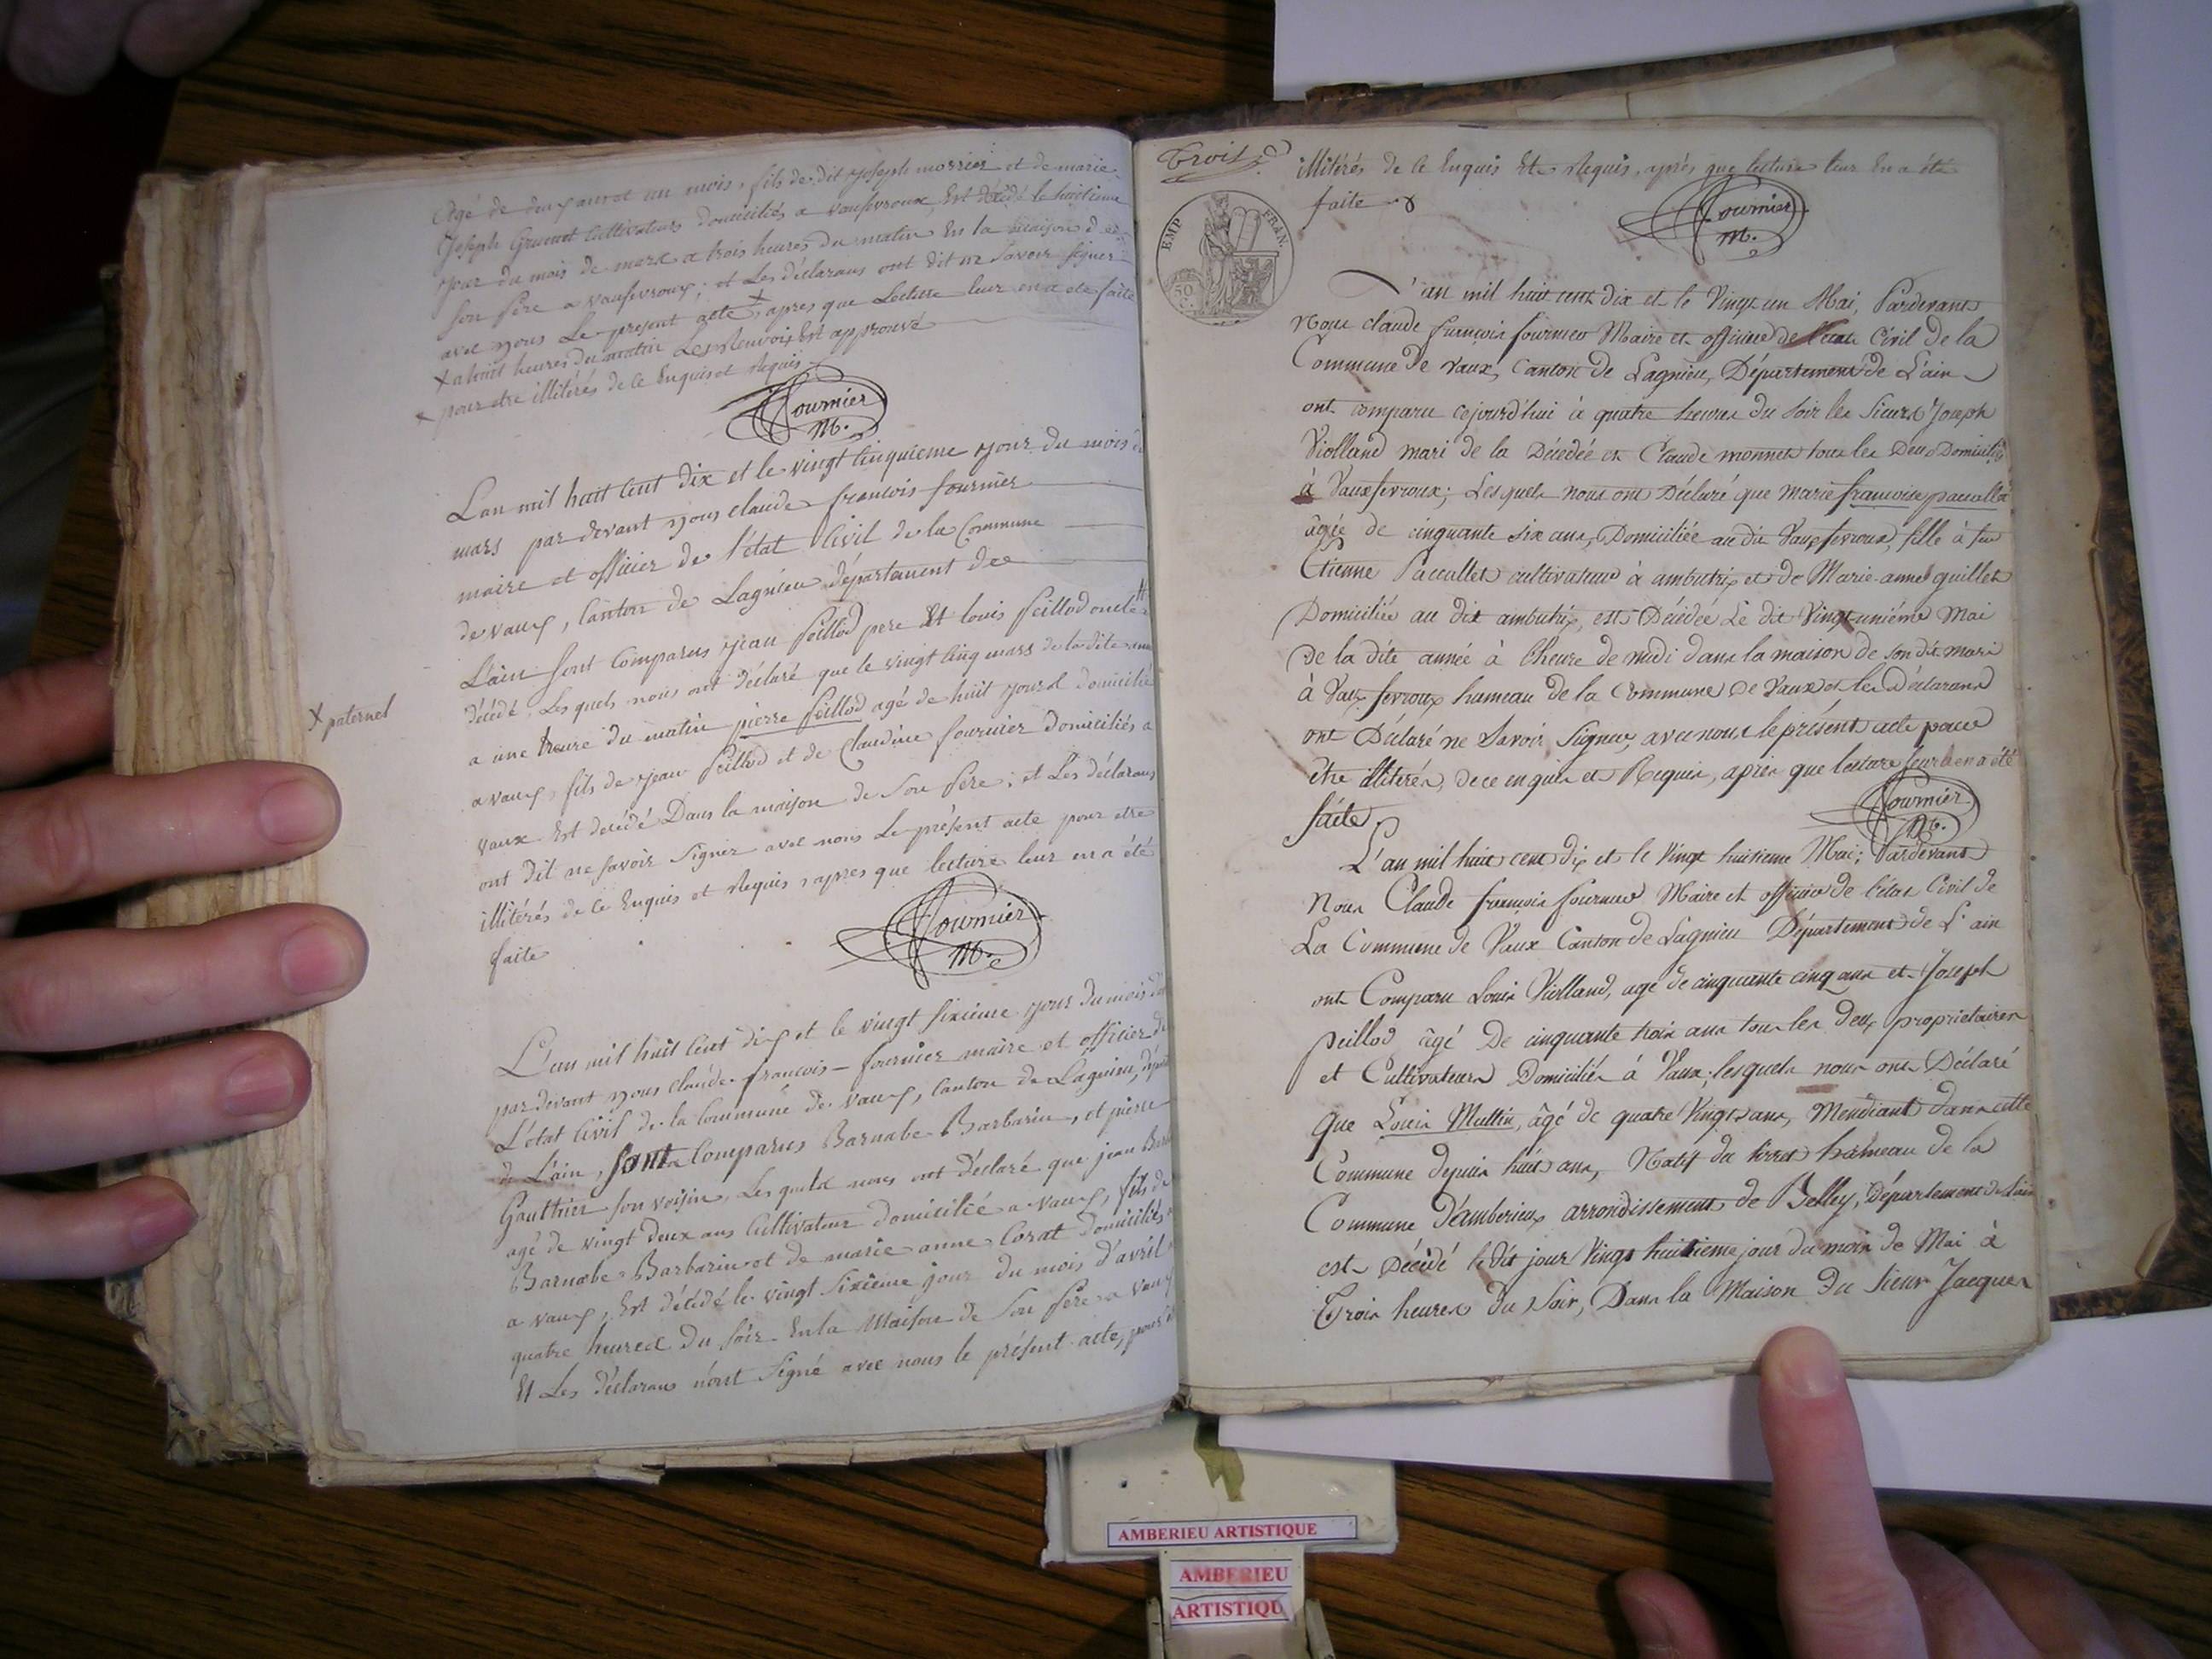 Agé de deux ans et un mois, fils de dit Joseph morrier et de marie
Joseph Grumet Cultivateurs domiciliés a vauxfevroux, Est décédé le huitieme
jour du mois de mars a trois heures du matin En la maison de
son père a vauxfevroux; et Les déclarans ont dit ne Savoir signer
avec nous Le present acte X apres que Lecture leur en a eté faite
X a huit heures du matin Les Renvois Est approuvé
x pour etre illitérés de ce Enquis et Requis
Fournier
M.
L'an mil huit Cent Dix et le vingt Cinquieme jour du mois de
mars par devant nous claude francois fournier
maire et officier de l'état Civil de la Commune
de vaux, Canton de Lagnieu département de
L'ain Sont Comparus jean peillod pere Et louis peillod oncle X
X paternel
décédé. Lesquels nous ont déclaré que le vingt Cinq mars de la dite année
a une heure du matin pierre peillod agé de huit jours domicilié
a vaux, fils de jean peillod et de Claudine fournier domiciliés a
vaux Est décédé Dans la maison de Son père; et Les déclarans
ont dit ne savoir Signer avec nous Le présent acte pour etre
illitérés de ce Enquis et Requis, apres que lecture leur en a été
faite
Fournier
M.
L'an mil huit Cent dix et le vingt sixieme jour du mois
par devant nous claude francois fournier maire et officier de
L'état Civil de la Commune de vaux, Canton de Lagnieu,
de L'ain, sont Comparus Barnabe Barbarin, et pierre
Gauthier son voisin, Lesquels nous ont déclaré que jean
agé de vingt deux ans Cultivateur domicilié a vaux, fils de
Barnabe Barbarin et de marie anne Corat domiciliés
a vaux, Est décédé le vingt Sixieme jour du mois d'avril
quatre heures Du Soir En la Maison de Son père a vaux
Et Les déclarans n'ont Signé avec nous le présent acte, pour
Trois
EMP FRAN.
50
C.
illitérés de ce Enquis Et Requis, après que lecture leur En a été
faite
Fournier
M.
L'an mil huit cent dix et le Vingt un Mai, Pardevant
Nous claude francois fournier Maire et officier de l'etat Civil de la
Commune de Vaux, Canton de Lagnieu, Département de L'ain
ont comparu cejourd'hui à quatre heures du soir les Sieurs Joseph
Violland mari de la Décédée et Claude monnet tous les Deux Domiciliés
à Vauxfevroux; Lesquels nous ont Déclaré que marie francoise pacallet
âgée de cinquante six ans, Domiciliée au dit Vauxfevroux, fille à feu
Etienne Paccallet cultivateur à ambutrix et de Marie anne guillet
Domiciliée au dit ambutrix, est Décédée Le dit Vingt unième Mai
De la dite année à l'heure de midi dans la maison de son dit mari
à Vaux fevroux hameau de la Commune de Vaux et les Déclarans
ont Déclaré ne Savoir Signer, avec nous le présent acte pour
être illiterés, de ce enquis et Requis, après que lecture leur en a été
faite.
Fournier
M.
L'an mil huit cent dix et le Vingt huitieme Mai; Pardevant
Nous Claude francois fournier Maire et officier de l'état Civil de
La Commune de Vaux Canton de Lagnieu Département de L'ain
ont Comparu Louis Violland, agé de cinquante cinq ans et Joseph
peillod âgé De cinquante trois ans tous les deux proprietaires
et Cultivateurs Domiciliés à Vaux, lesquels nous ont Déclaré
que Louis Mullin, âgé de quatre Vingts ans, Mendiant dans cette
Commune depuis huit ans, Natif du tiret hameau de la
Commune d'amberieux arrondissement de Belley, département de l'ain
est Décédé le dit jour Vingt huitieme jour du mois de Mai à
Trois heures du Soir, Dans la Maison du Sieur Jacques
AMBERIEU ARTISTIQUE
AMBERIEU
ARTISTIQU